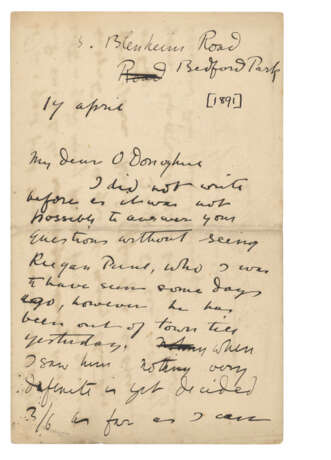 3. Blenheim Road
Road Bedford Park
17 April
[1891]
My dear O Donoghue
I did not write
before as it was not
possible to answer your
questions without seeing
Keegan Paul, who I was
to have seen some days
ago, however he has
been out of town till
yesterday. when
I saw him nothing very
definite is yet decided
3/6 as far as I can